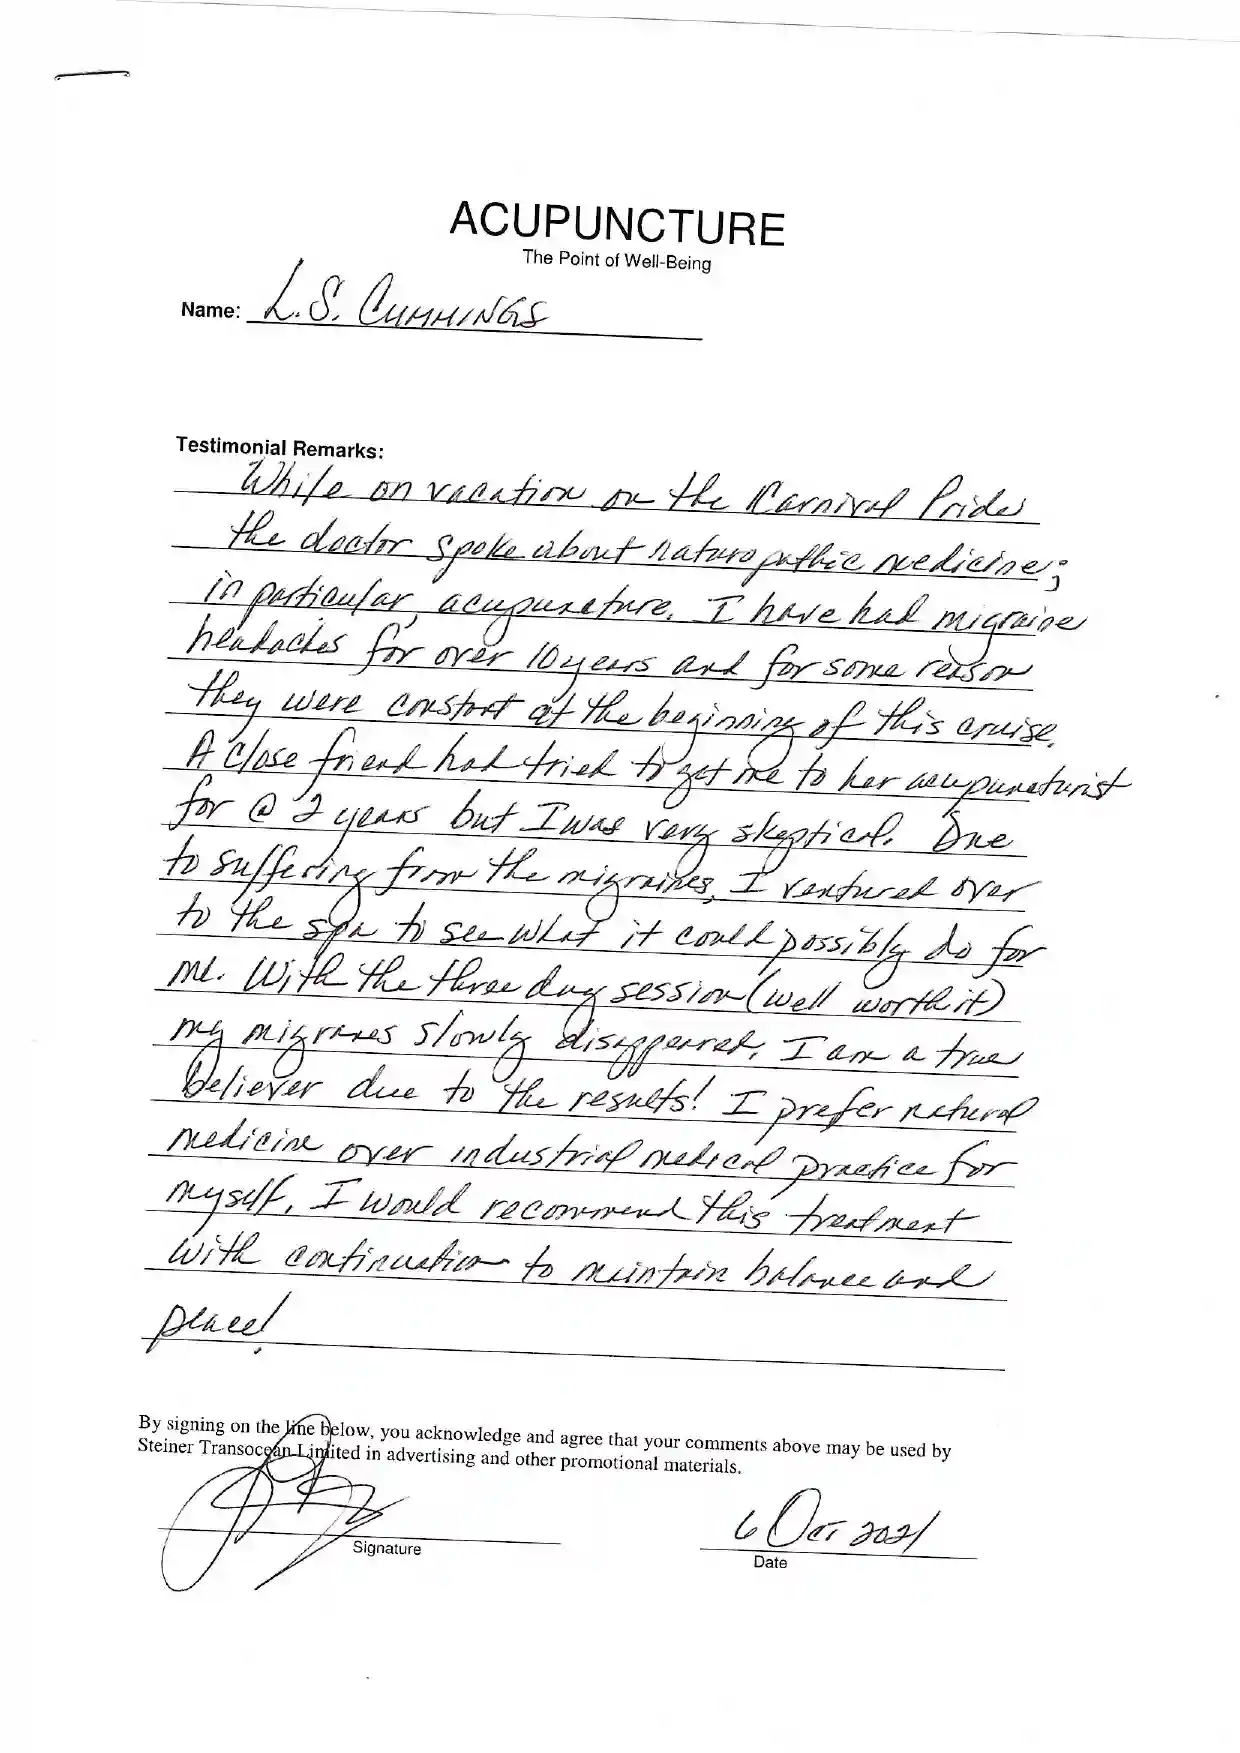 ACUPUNCTURE
The Point of Well-Being
Name: L.S. CUMMINGS
Testimonial Remarks:
While on vacation on the Carnival Pride
the doctor spoke about naturopathic medicine;
in particular, acupuncture. I have had migraine
headaches for over 10 years and for some reason
they were constant at the beginning of this cruise.
A close friend had tried to get me to her acupuncturist
for @ 2 years but I was very skeptical. Due
to suffering from the migraines, I ventured over
to the spa to see what it could possibly do for
me. With the three day session (well worth it)
my migranes slowly disappeared. I am a true
believer due to the results! I prefer natural
medicine over industrial medical practice for
myself. I would recommend this treatment
with continuation to maintain balance and
peace!
By signing on the line below, you acknowledge and agree that your comments above may be used by
Steiner Transocean Limited in advertising and other promotional materials.
6 Oct 2021
Signature
Date